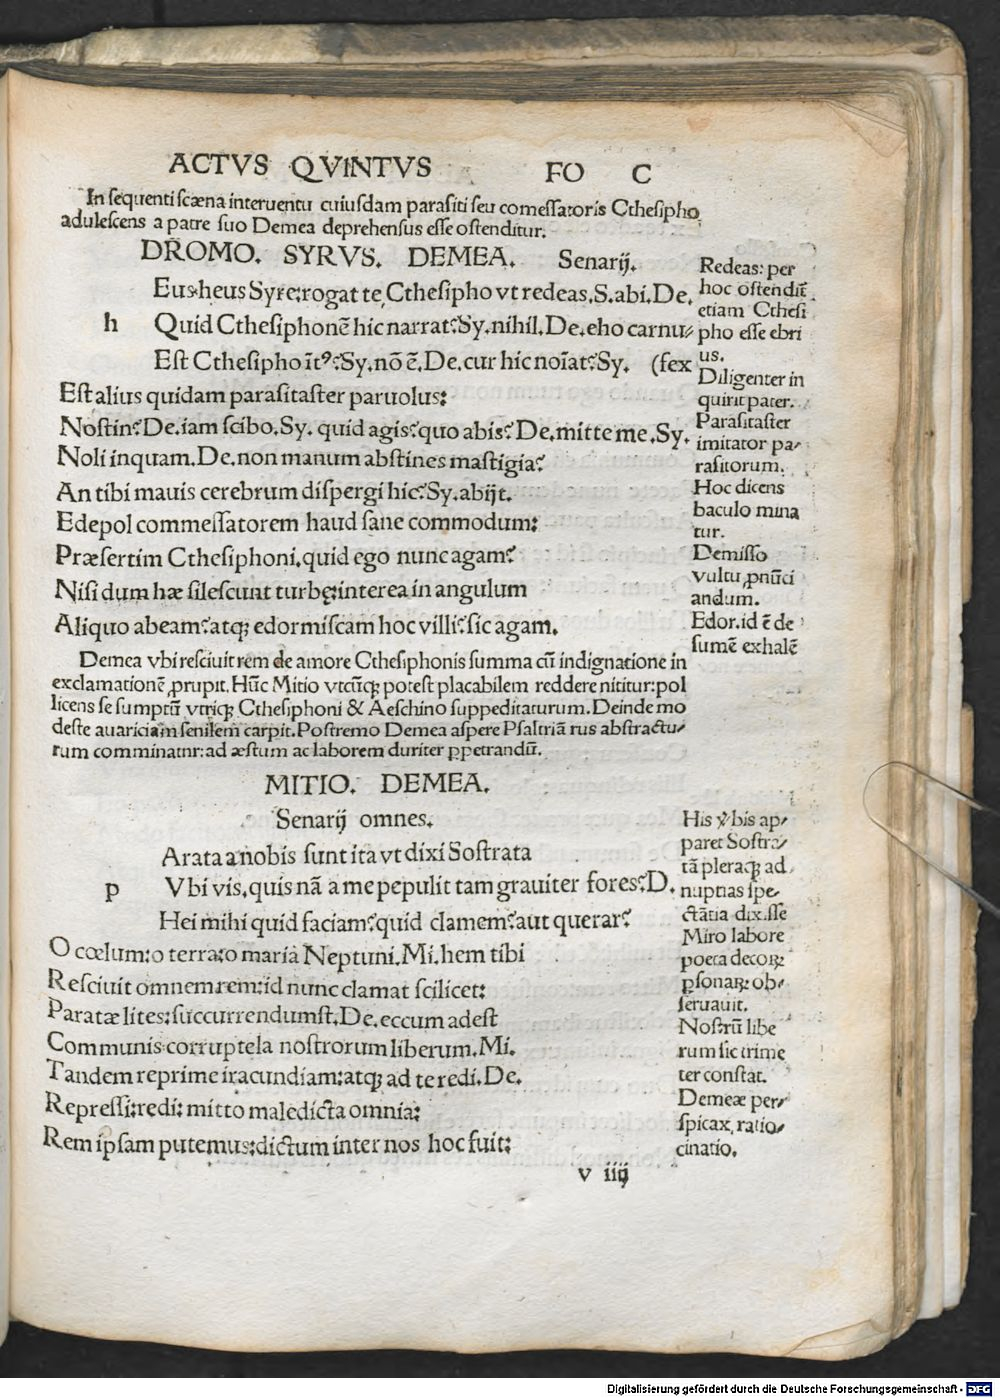 ACTVS QVINTVS FO C
In sequenti scæna interuentu cuiusdam parasiti seu comessatoris Cthesipho
adulescens a patre suo Demea deprehensus esse ostenditur.
DROMO. SYRVS. DEMEA. Senarij.
Eus:heus Syre:rogat te Cthesipho vt redeas.S.abi.De.
h Quid Cthesiphonē hic narrat?Sy.nihil.De.eho carnu-
Est Cthesipho īt⁹?Sy.nō ē.De.cur hic noīat?Sy. (fex
Est alius quidam parasitaster paruolus:
Nostin?De.iam scibo.Sy. quid agis?quo abis?De.mitte me.Sy.
Noli inquam.De.non manum abstines mastigia?
An tibi mauis cerebrum dispergi hic?Sy.abijt.
Edepol commessatorem haud sane commodum:
Præsertim Cthesiphoni.quid ego nunc agam?
Nisi dum hæ silescunt turbę:interea in angulum
Aliquo abeam?atq; edormiscam hoc villi?sic agam.
Redeas: per
hoc ostendit̄
etiam Cthesi
pho esse ebri
us.
Diligenter in
quirit pater.
Parasitaster
imitator pa-
rasitorum.
Hoc dicens
baculo mina
tur.
Demisso
vultu ꝓnūci
andum.
Edor.id ē de
sumē exhalē
Demea vbi resciuit rem de amore Cthesiphonis summa cū indignatione in
exclamationē ꝓrupit. Hūc Mitio vtcūq; potest placabilem reddere nititur:pol
licens se sumptū vtriq; Cthesiphoni & Aeschino suppeditaturum. Deinde mo
deste auariciam senilem carpit. Postremo Demea aspere Psaltriā rus abstractu-
rum comminatnr: ad æstum ac laborem duriter ꝑpetrandū.
MITIO. DEMEA.
Senarij omnes.
Arata a nobis sunt ita vt dixi Sostrata
p Vbi vis.quis nā a me pepulit tam grauiter fores?D.
Hei mihi quid faciam?quid clamem?aut querar?
O cœlum:o terra:o maria Neptuni.Mi.hem tibi
Resciuit omnem rem:id nunc clamat scilicet:
Paratæ lites:succurrendumst.De.eccum adest
Communis corruptela nostrorum liberum.Mi.
Tandem reprime iracundiam:atq; ad te redi.De.
Repressi:redi: mitto maledicta omnia:
Rem ipsam putemus:dictum inter nos hoc fuit:
His v̾bis ap-
paret Sostra-
tā pleraq; ad
nuptias spe-
ctātia dixisse
Miro labore
poeta decoꝝ
ꝑsonaꝝ ob-
seruauit.
Nostrū libe
rum sic trime
ter constat.
Demeæ per-
spicax ratio-
cinatio.
v iiij
Digitalisierung gefördert durch die Deutsche Forschungsgemeinschaft - DFG